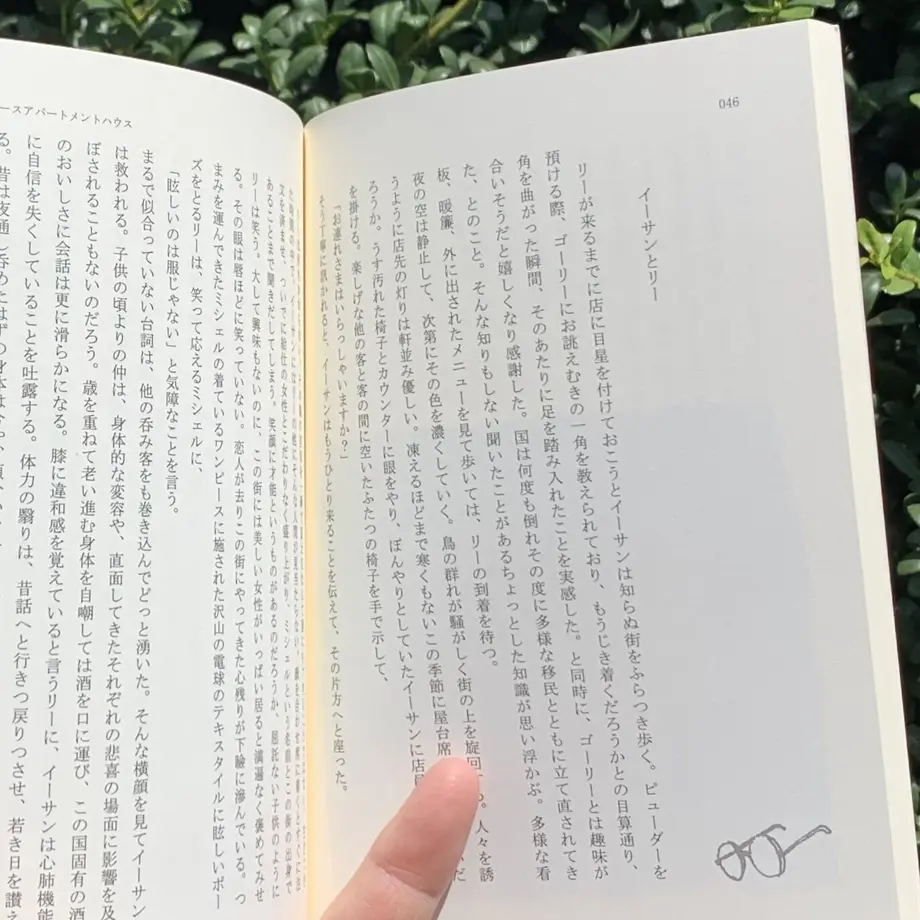 046
イーサンとリー
リーが来るまでに店に目星を付けておこうとイーサンは知らぬ街をふらつき歩く。ピューダーを
預ける際、ゴーリーにお誂えむきの一角を教えられており、もうじき着くだろうかとの目算通り、
角を曲がった瞬間、そのあたりに足を踏み入れたことを実感した。と同時に、ゴーリーとは趣味が
合いそうだと嬉しくなり感謝した。国は何度も倒れその度に多様な移民とともに立て直されてき
た、とのこと。そんな知りもしない聞いたことがあるちょっとした知識が思い浮かぶ。多様な看
板、暖簾、外に出されたメニューを見て歩いては、リーの到着を待つ。
夜の空は静止して、次第にその色を濃くしていく。鳥の群れが騒がしく街の上を旋回 。人々を誘
うように店先の灯りは軒並み優しい。凍えるほどまで寒くもないこの季節に屋台席 だ
ろうか。うす汚れた椅子とカウンターに眼をやり、ぼんやりとしていたイーサンに店
を掛ける。楽しげな他の客と客の間に空いたふたつの椅子を手で示して、
「お連れさまはいらっしゃいますか?」
そう丁寧に訊かれると、イーサンはもうひとり来ることを伝えて、その片方へと座った。
ースアパートメントハウス
文を済ませ、ついでに給仕の女性とこだわりなく盛り上がり、ミシェルという名前とこの街の出身で
あることまで聞きだしてしまう。笑顔に才能というものがあるのだろうか、屈託ない子供のように
リーは笑う。大して興味もないのに、この街には美しい女性がいっぱい居ると満遍なく褒めてみせ
る。その眼は唇ほどに笑っていない。恋人が去りこの街にやってきた心残りが下瞼に滲んでいる。つ
まみを運んできたミシェルの着ているワンピースに施された沢山の電球のテキスタイルに眩しいポー
ズをとるリーは、笑って応えるミシェルに、
「眩しいのは服じゃない」と気障なことを言う。
まるで似合っていない台詞は、他の呑み客をも巻き込んでどっと湧いた。そんな横顔を見てイーサン
は救われる。子供の頃よりの仲は、身体的な変容や、直面してきたそれぞれの悲喜の場面に影響を及
ぼされることもないのだろう。歳を重ねて老い進む身体を自嘲しては酒を口に運び、この国固有の酒
のおいしさに会話は更に滑らかになる。膝に違和感を覚えていると言うリーに、イーサンは心肺機能
に自信を失くしていることを吐露する。体力の翳りは、昔話へと行きつ戻りつさせ、若き日を讃え
る。昔は夜通し呑めたはずの身体は